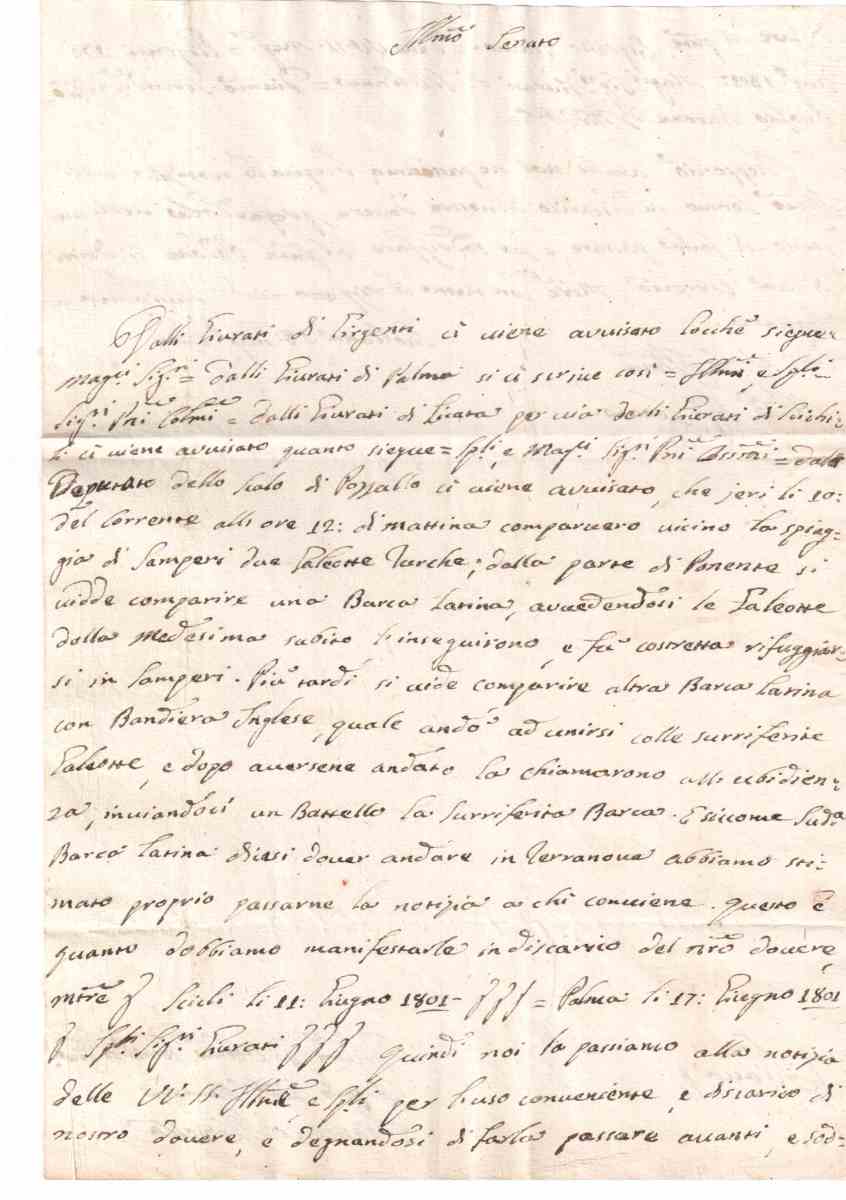 Illmo Senato
Dalli Giurati di Girgenti ci viene avvisato locchè siegue =
Magci. Sigri. = dalli Giurati di Palma si ci scrive così = Illmi, e Spli.
Sigri. Pni Colmi = dalli Giurati di Licata per via delli Giurati di Scichi-
li ci viene avvisato quanto siegue = Spli, e Magci. Sigri. Pni = dalla
Deputato dello Scalo di Pozzallo ci viene avvisato, che jeri li 10:
del Corrente alli ore 12: di mattina comparvero vicino la spiag=
gia di Samperi due Galeotte Turche; dalla parte di Ponente si
vidde comparire una Barca Latina, avvedendosi le Galeotte
della medesima subito l'inseguirono, e fù costretta rifuggiar=
si in Samperi. Più tardi si vide comparire altra Barca Latina
con Bandiera Inglese, quale andò ad unirsi colle surriferite
Galeotte, e dopo aversene andato la chiamarono all'ubidien=
za, inviandoci un Battello la surriferita Barca. E siccome Sud.a
Barca Latina diesi dover andare in Terranova abbiamo sti-
mato proprio passarne la notizia a chi conviene. Questo è
quanto dobbiamo manifestarle in discarico del nrō dovere,
mtre Scicli li 11: Giugno 1801 - = Palma li 17: Giugno 1801
Spli. Sigri. Giurati Quindi noi la passiamo alla notizia
delle VV. SS. Illme, e Spli. per l'uso conveniente, e discarico di
nostro dovere, e degnandosi di farla passare avanti, e sod=